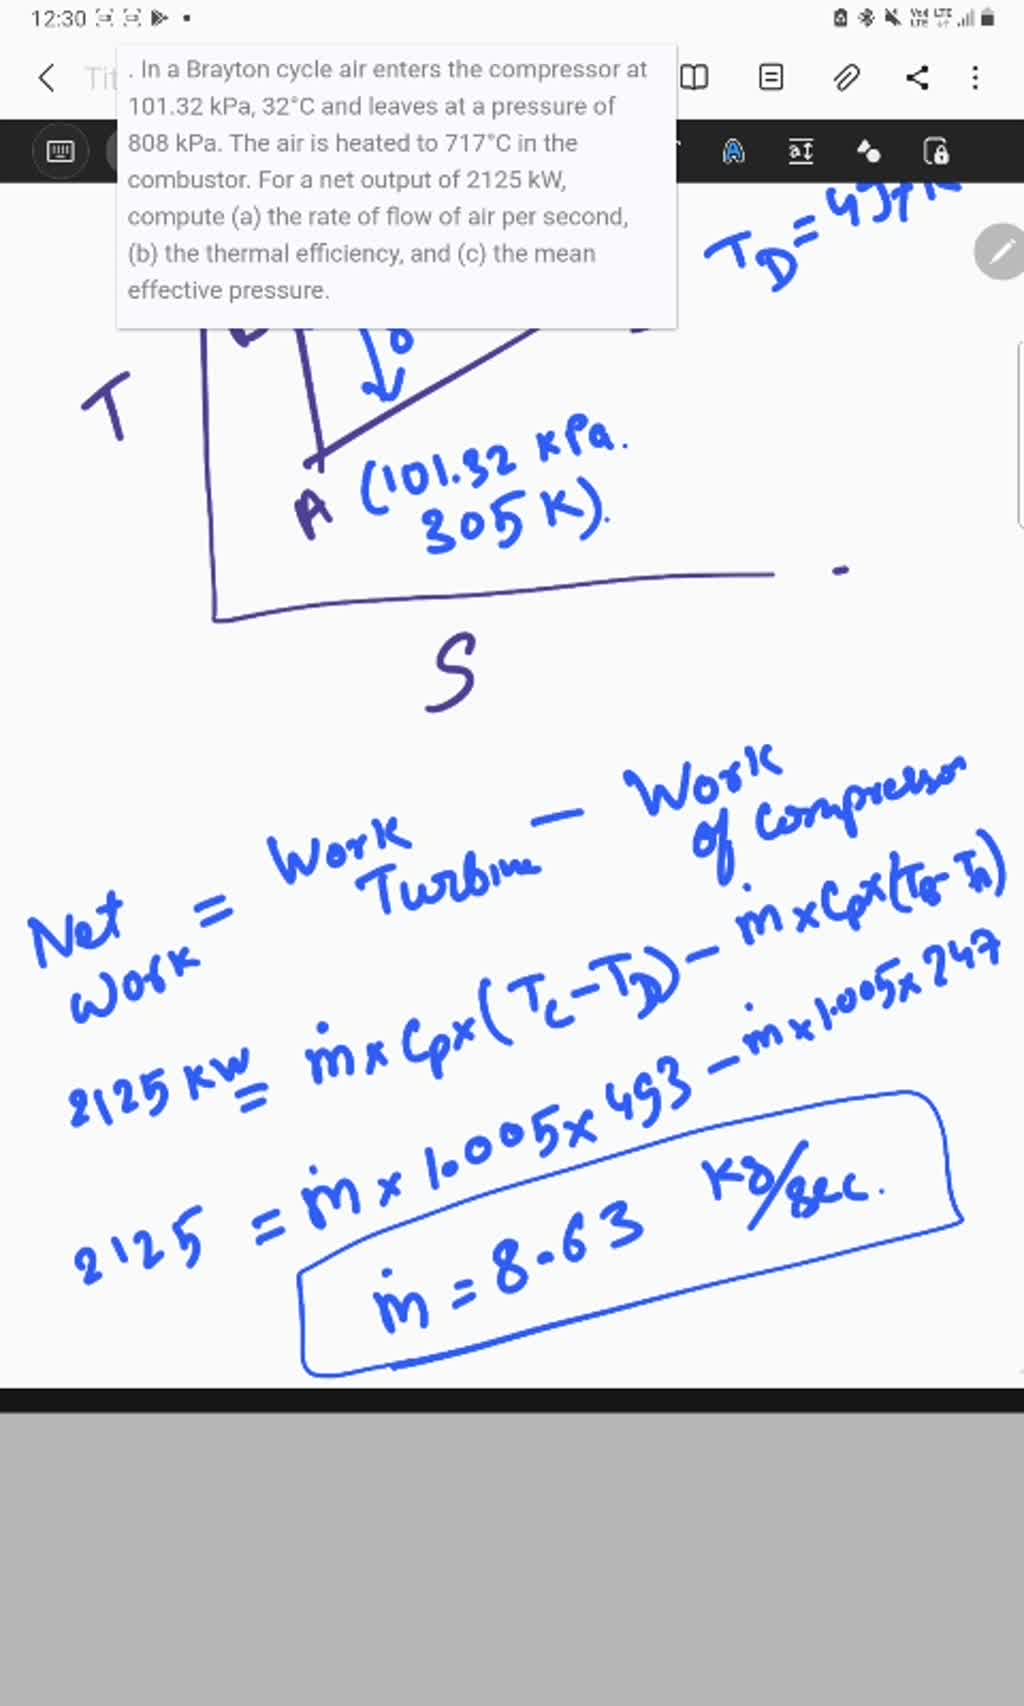 12:30
Tit
. In a Brayton cycle air enters the compressor at
101.32 kPa, 32°C and leaves at a pressure of
808 kPa. The air is heated to 717°C in the
combustor. For a net output of 2125 kW,
compute (a) the rate of flow of air per second,
(b) the thermal efficiency, and (c) the mean
effective pressure.
T_D = 497K
T
A (101.32 kPa.
305 K).
S
Net Work = Work Turbine - Work of Compressor
2125 KW = ṁ x Cp x (T_C - T_D) - ṁ x Cp x (T_B - T_A)
2125 = ṁ x 1.005 x 493 - ṁ x 1.005 x 247
ṁ = 8.63 Kg/sec.